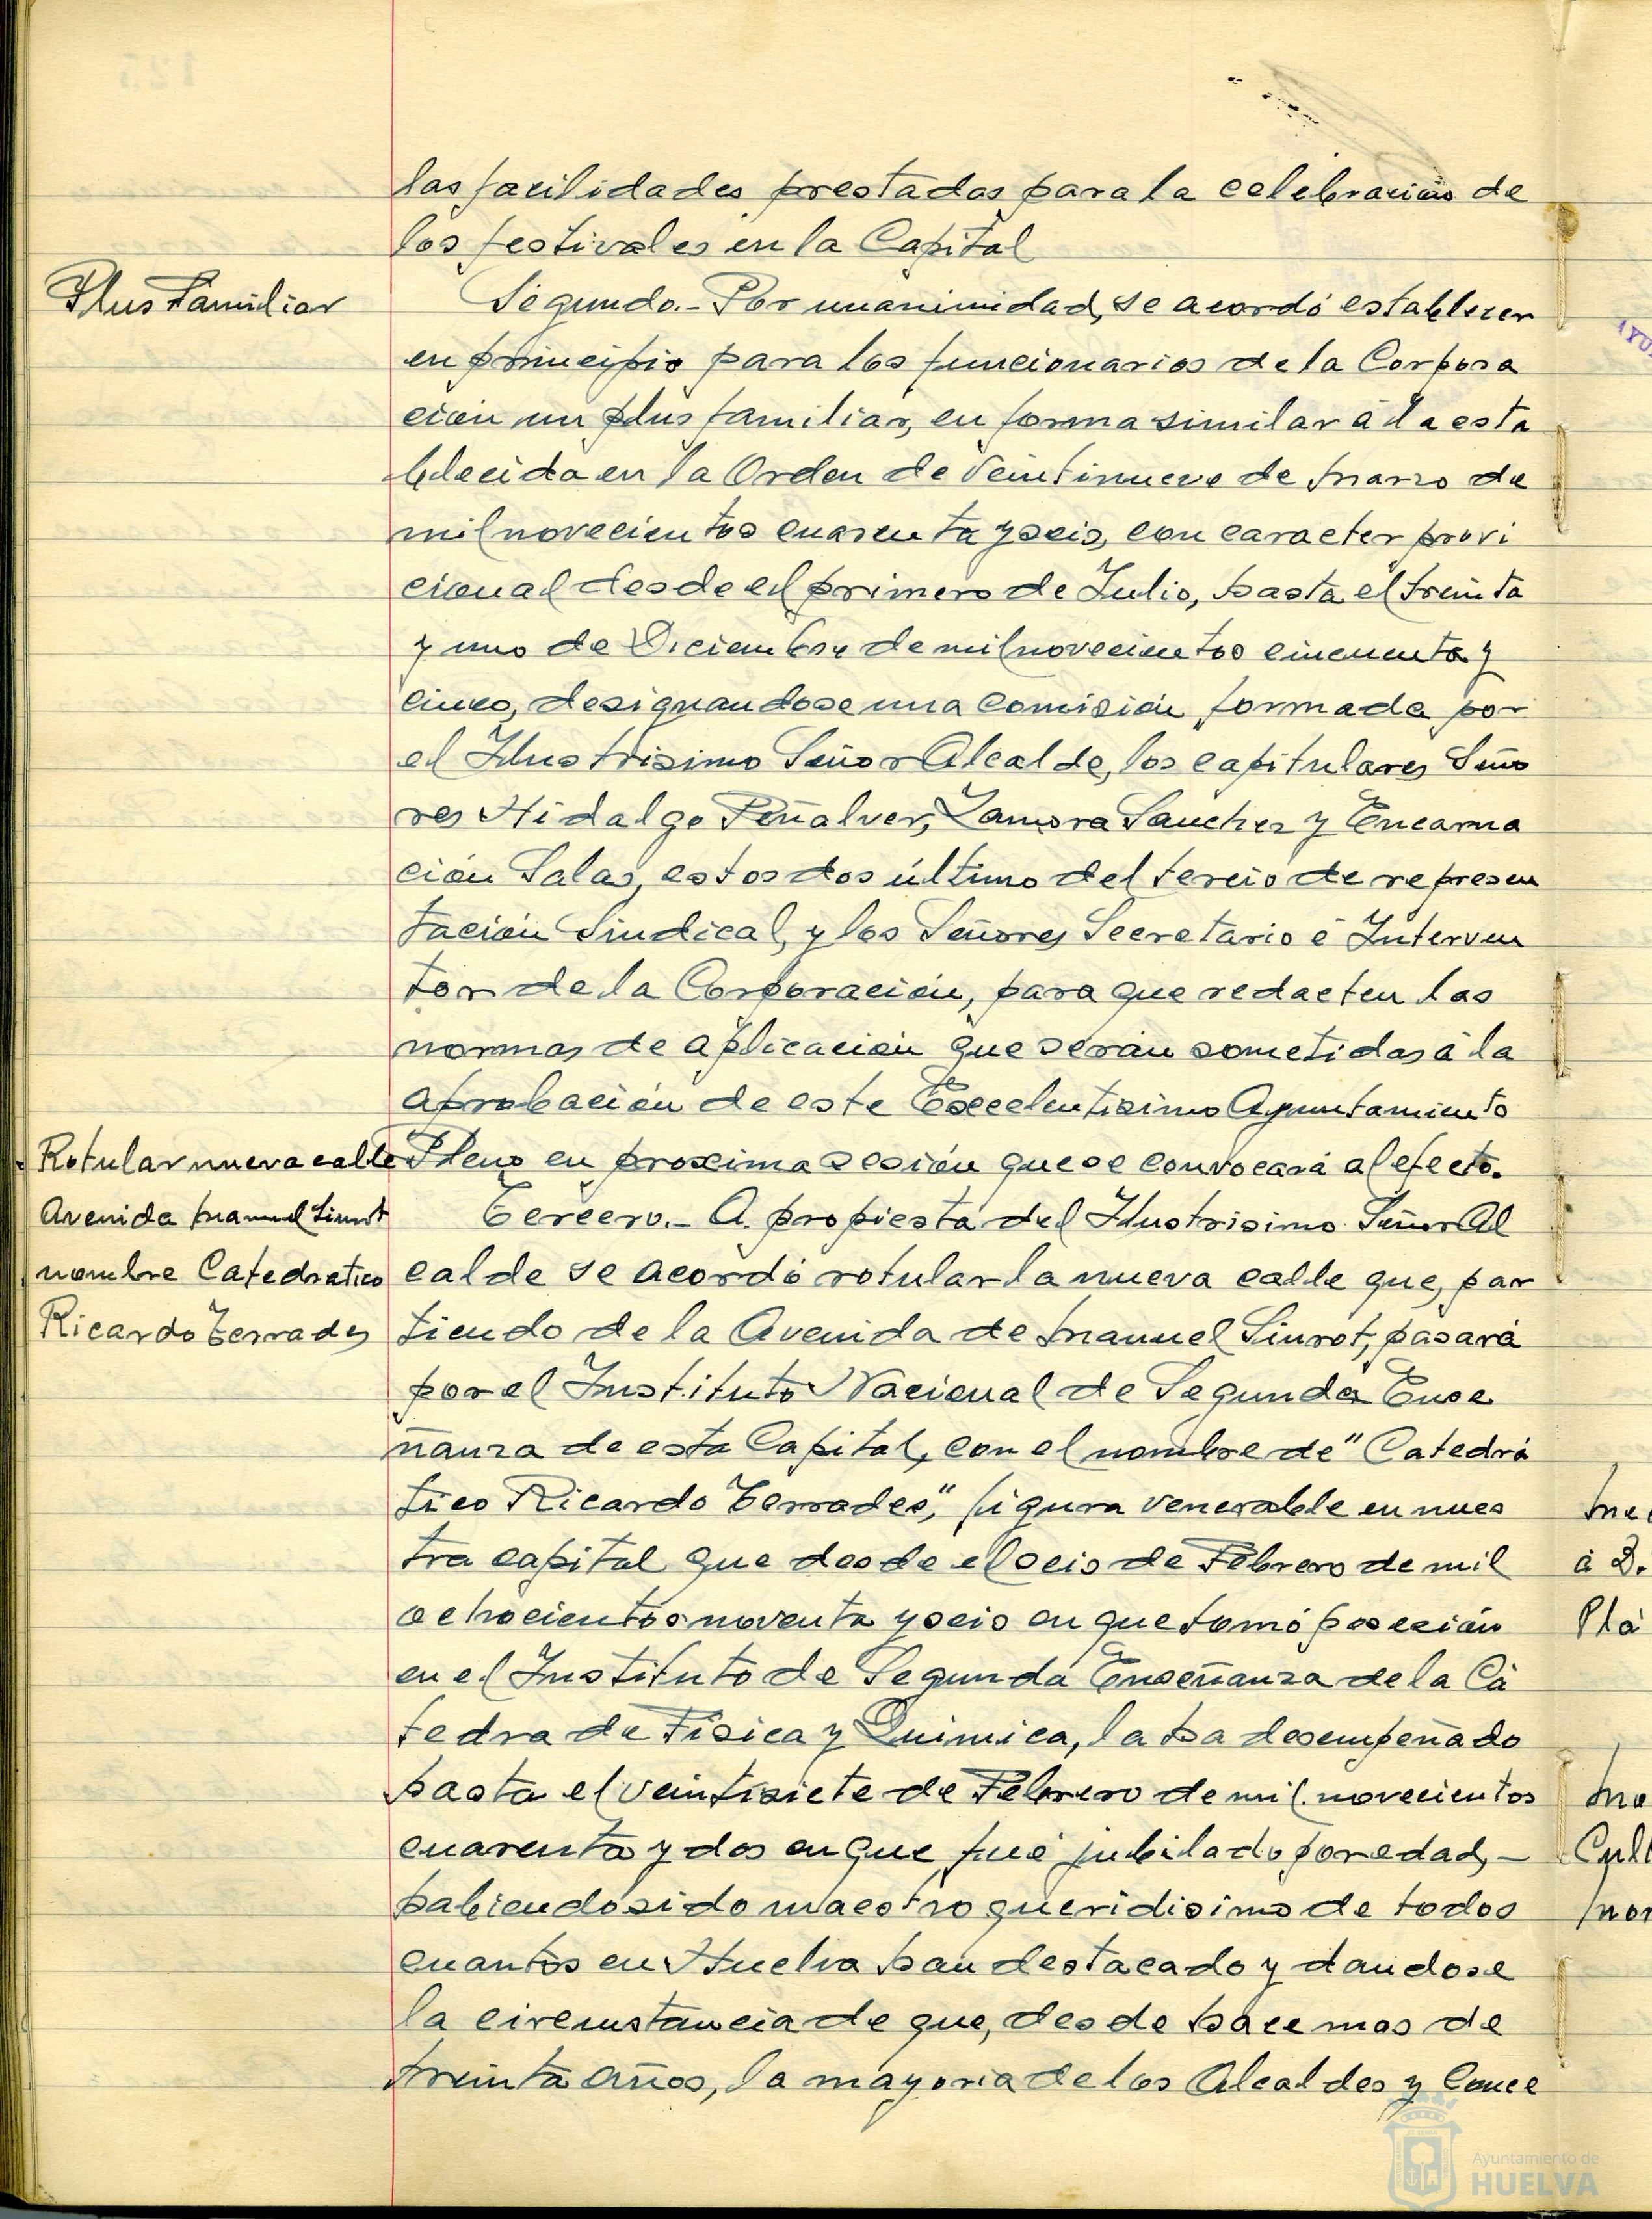 las facilidades prestadas para la celebración de
los festivales en la Capital
Plus Familiar
Segundo.- Por unanimidad, se acordó establecer
en principio para los funcionarios de la Corpora
ción un plus familiar, en forma similar á la esta
blecida en la Orden de Veintinueve de Marzo de
mil novecientos cuarenta y seis, con caracter provi
cional desde el primero de Julio, hasta el treinta
y uno de Diciembre de mil novecientos cincuenta y
cinco, designandose una comisión formada por
el Ilustrisimo Señor Alcalde, los capitulares Seño
res Hidalgo Peñalver, Zamora Sanchez y Encarna
ción Salas, estos dos último del tercio de represen
tación Sindical, y los Señores Secretario é Interven
tor de la Corporación, para que redacten las
normas de aplicación que serán sometidas á la
aprobación de este Excelentisimo Ayuntamiento
Pleno en proxima sesión que se convocará al efecto.
Rotular nueva calle
Avenida Manuel Siurot
nombre Catedratico
Ricardo Terrades
Tercero.- A propiesta del Ilustrisimo Señor Al
calde se acordó rotular la nueva calle que, par
tiendo de la Avenida de Manuel Siurot, pasará
por el Instituto Nacional de Segunda Ense
ñanza de esta Capital, con el nombre de "Catedrá
tico Ricardo Terrades", figura venerable en nues
tra capital que desde el seis de Febrero de mil
ochocientos noventa y seis en que tomó posesión
en el Instituto de Segunda Enseñanza de la Cá
tedra de Fisica y Quimica, la ha desempeñado
hasta el veintisiete de Febrero de mil novecientos
cuarenta y dos en que fué jubilado por edad, -
habiendo sido maestro queridisimo de todos
cuantos en Huelva han destacado y dandose
la circunstancia de que, desde hace mas de
treinta años, la mayoria de los Alcaldes y Conce
á D.
Plá
Ayuntamiento de
HUELVA